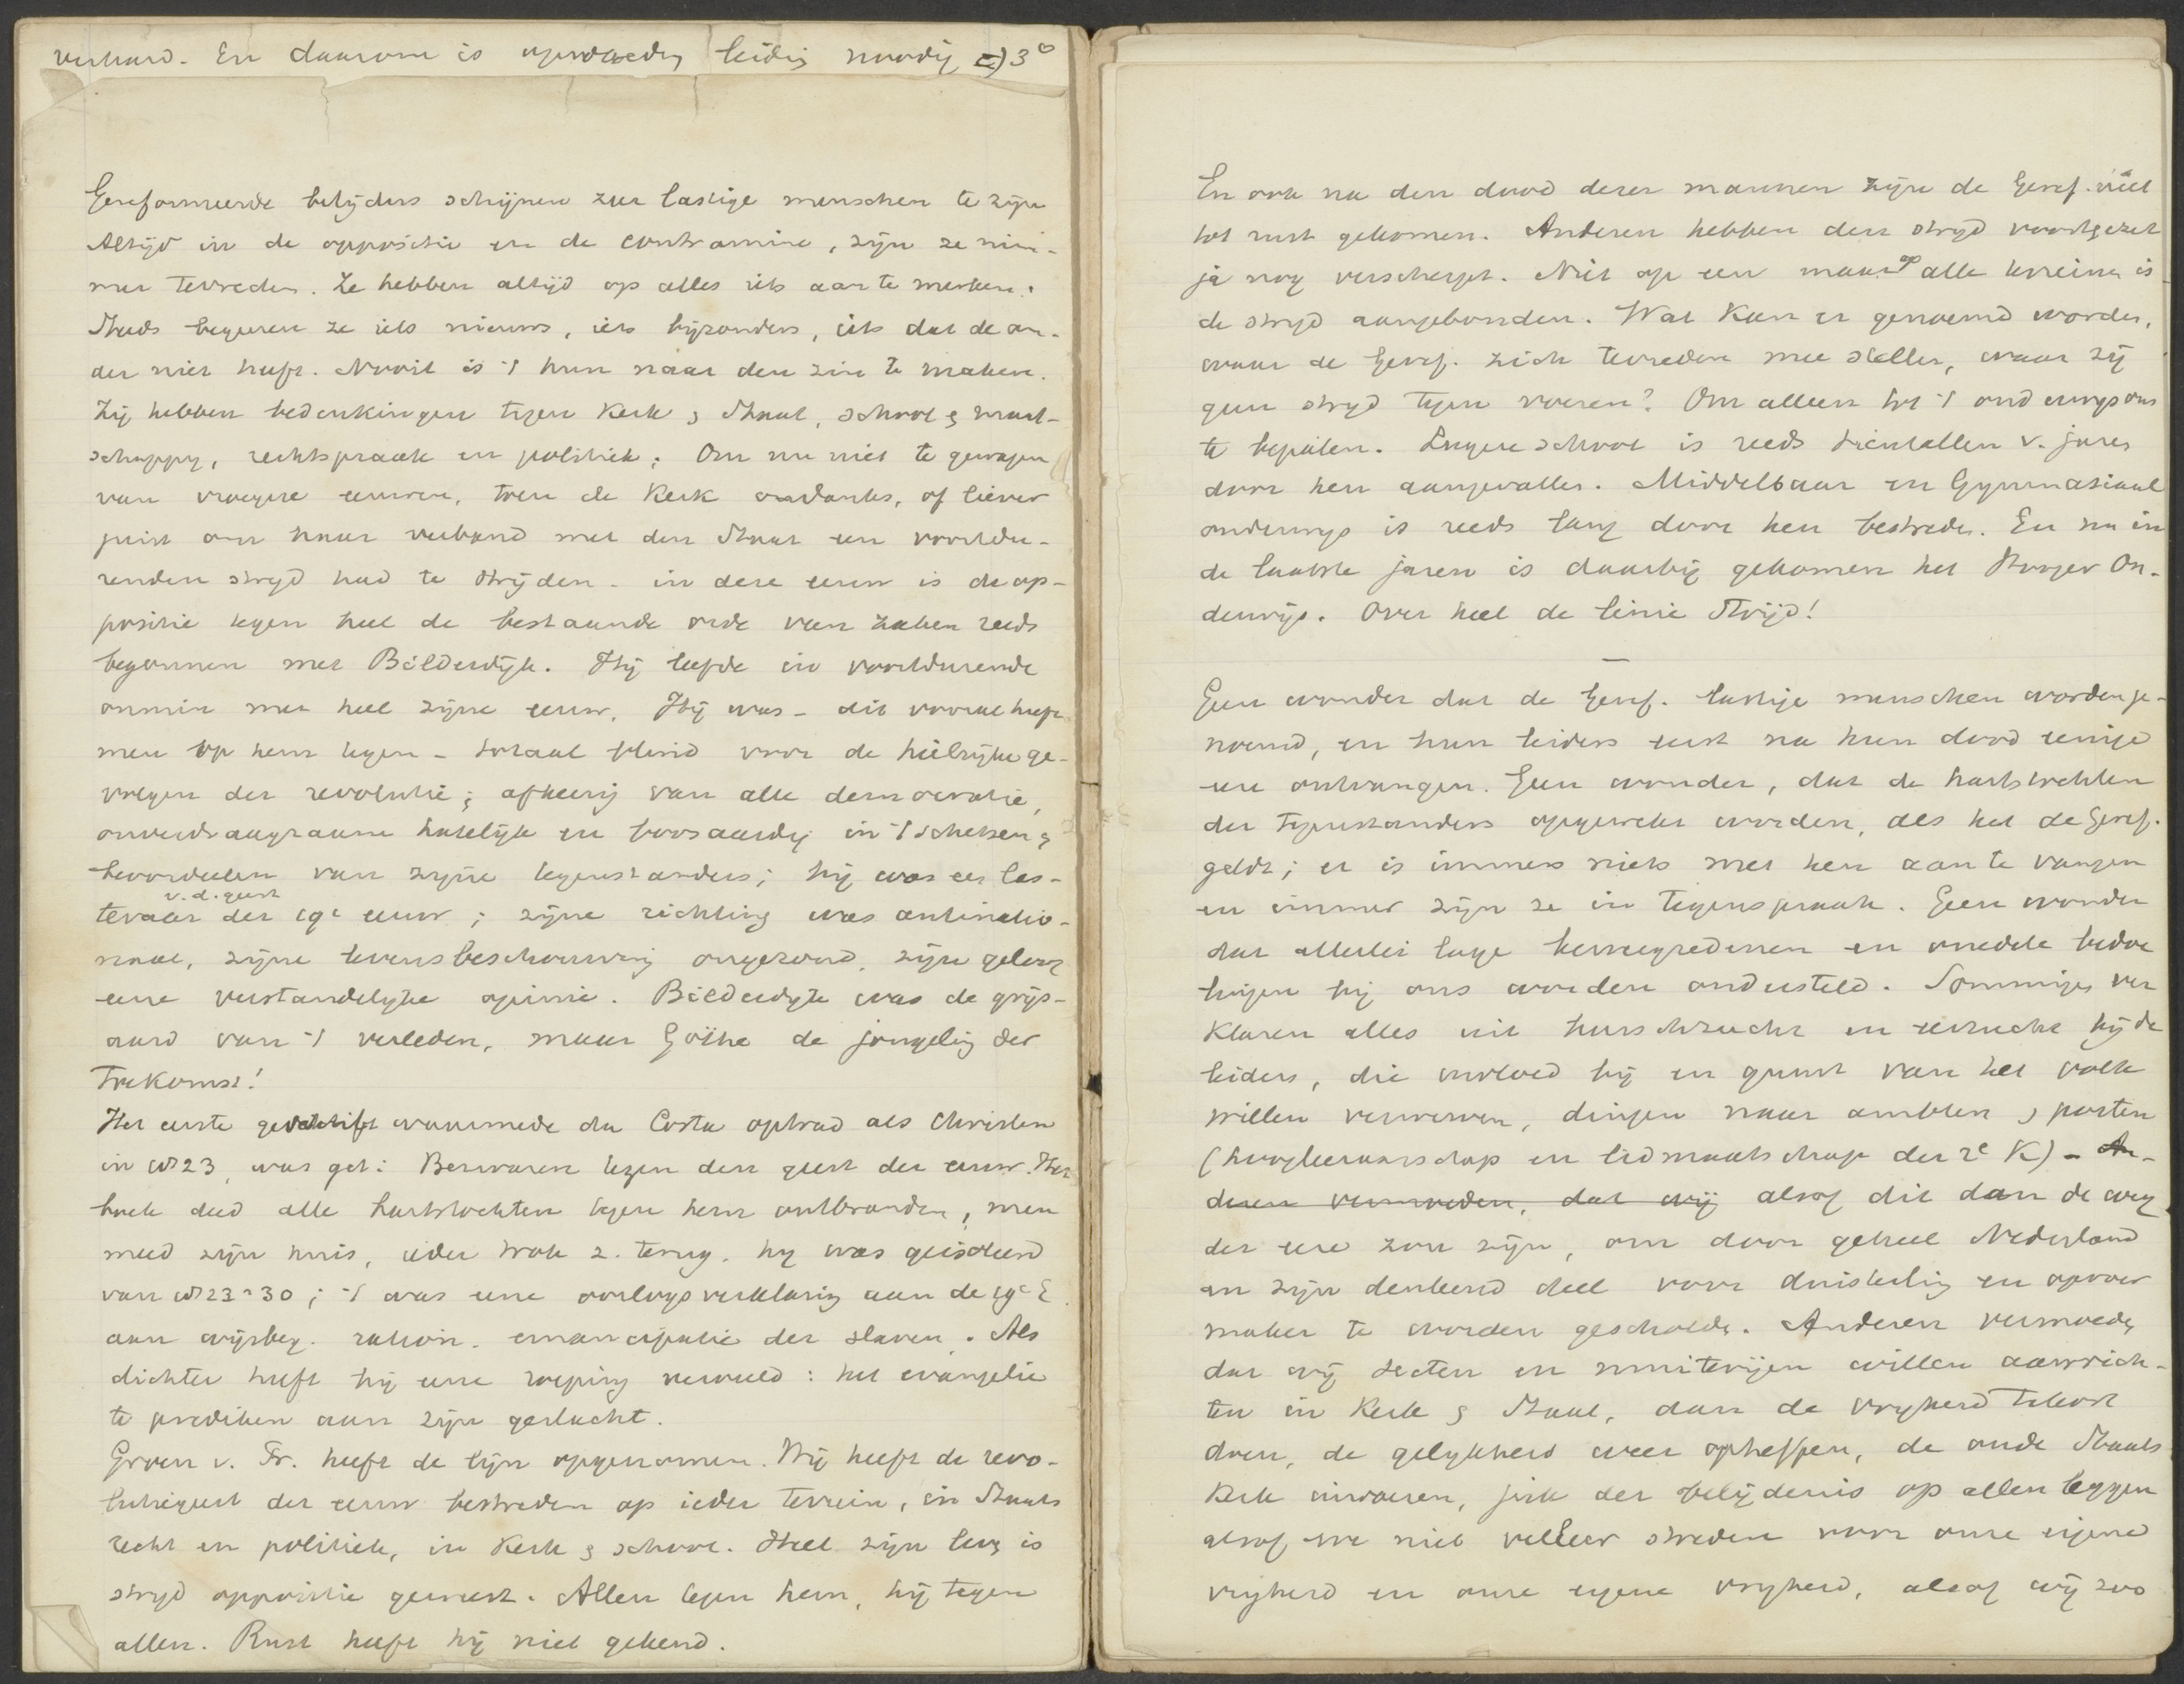 verhard. En daarom is opvoeding leiding noodig c) 3°
Gereformeerde belijders schijnen zeer lastige menschen te zijn
Altijd in de oppositie en de contramine, zijn ze nim-
mer tevreden. Ze hebben altijd op alles iets aan te merken.
Steeds begeeren ze iets nieuws, iets bijzonders, iets dat de an-
der niet heeft. Nooit is 't hun naar den zin te maken.
Zij hebben bedenkingen tegen Kerk & Staat, school & maat-
schappy, rechtspraak en politiek; Om nu niet te gewagen
van vroegere eeuwen, toen de Kerk ondanks, of liever
juist om haar verband met den Staat een voortdu-
renden stryd had te strijden - in deze eeuw is de op-
positie tegen heel de bestaande orde van zaken reeds
begonnen met Bilderdijk. Hij leefde in voortdurende
onmin met heel zijne eeuw. Hij was - dit vooral heeft
men op hem tegen - totaal blind voor de heilrijke ge-
volgen der revolutie; afkeerig van alle democratie,
onverdraagzaam hatelijk en boosaardig in 't schetsen &
beoordeelen van zijne tegenstanders; hij was een las-
teraar v. d. geest der 19e eeuw; zijne richting was antinatio-
naal, zijne levensbeschouwing ongezond, zijn geloof
eene verstandelyke opinie. Bilderdyk was de grijs-
aard van 't verleden, maar Göthe de jongeling der
Toekomst!
Het eerste geschrift waarmede da Costa optrad als Christen
in 1823, was get: Bezwaren tegen den geest der eeuw. Het
boek deed alle hartstochten tegen hem ontbranden, men
meed zijn huis, ieder trok z. terug, hy was geisoleerd
van 1823-30; 't was eene oorlogsverklaring aan de 19e E
aan wijsbeg. ration. emancipatie der slaven. Als
dichter heeft hij eene roeping vervuld: het evangelie
te prediken aan zijn geslacht.
Groen v. Pr. heeft de lijn opgenomen. Hij heeft de revo-
lutiegeest der eeuw bestreden op ieder terrein, in Staats
recht en politiek, in Kerk & school. Heel zijn leven is
stryd oppositie geweest. Allen tegen hem, hij tegen
allen. Rust heeft hij niet gekend.
En ook na den dood dezer mannen zijn de Geref. niet
tot rust gekomen. Anderen hebben den stryd voortgezet
ja nog verscherpt. Niet op een maar op alle terreinen is
de stryd aangebonden. Wat kan er genoemd worden,
waar de Geref. zich tevreden mee stellen, waar zij
geen stryd tegen voeren? Om alleen tot 't onderwijs ons
te bepalen. Lagere school is reeds tientallen v. jaren
door hen aangevallen. Middelbaar en Gymnasiaal
onderwijs is reeds lang door hen bestreden. En nu in
de laatste jaren is daarbij gekomen het Hooger On-
derwijs. Over heel de linie Strijd!
—
Geen wonder dat de Geref. lastige menschen worden ge-
noemd, en hun leiders eerst na hun dood eenige
eere ontvangen. Geen wonder, dat de hartstochten
der tegenstanders opgewekt worden, als het de Geref.
geldt; er is immers niets met hen aan te vangen
en immer zijn ze in tegenspraak. Geen wonder
dat allerlei lage beweegredenen en onedele bedoe
lingen bij ons worden ondersteld. Sommigen ver
klaren alles uit heerschzucht en eerzucht bij de
leiders, die invloed bij en gunst van het volk
willen verwerven, dingen naar ambten & posten
(hoogleeraarschap en lidmaatschap der 2e K) - An-
deren vermoeden, dat wij alsof dit dan de weg
der eere zou zijn, om door geheel Nederland
en zijn denkend deel voor duisterling en oproer
maker te worden gescholden. Anderen vermoeden
dat wij secten en muiterijen willen aanrich-
ten in Kerk & Staat, dan de vryheid tekort
doen, de gelykheid weer opheffen, de oude Staats
Kerk invoeren, juk der belijdenis op allen leggen
alsof we niet veeleer streden voor onze eigene
vryheid en onze eigene vryheid, alsof wij zoo